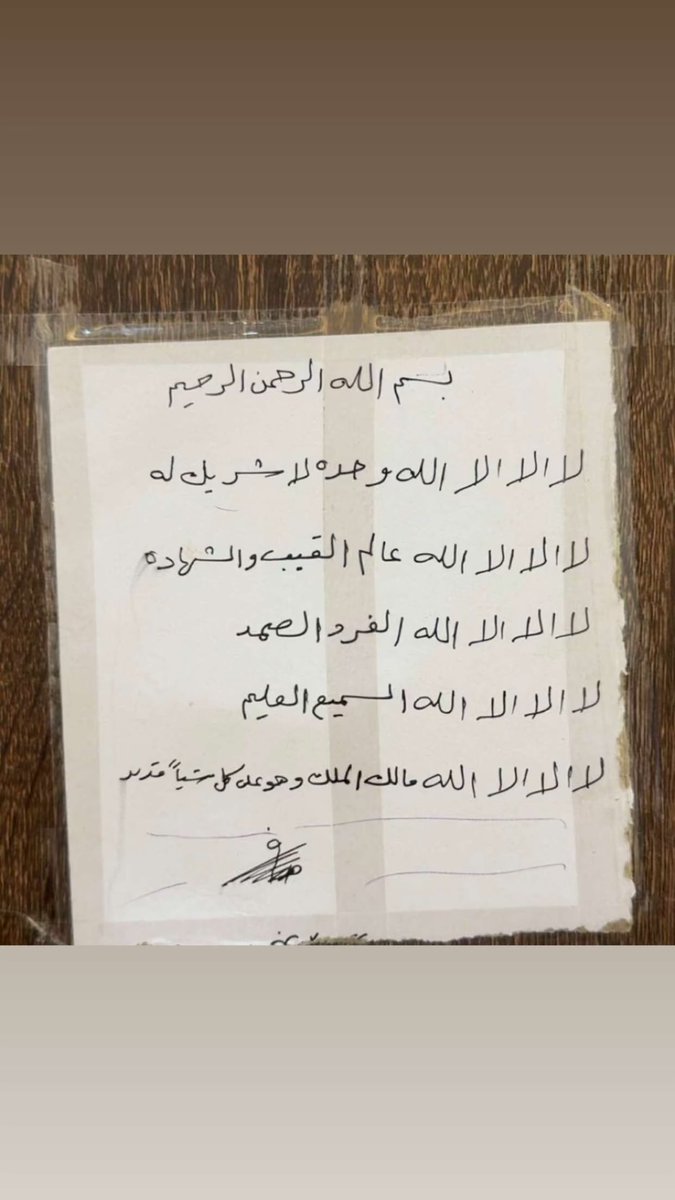 بسم الله الرحمن الرحيم
لا الا الا الله وحده لا شريك له
لا الا الا الله عالم القيب والشهاده
لا الا الا الله الفرد الصمد
لا الا الا الله السميع العليم
لا الا الا الله مالك الملك وهو على كل شيأً قدير